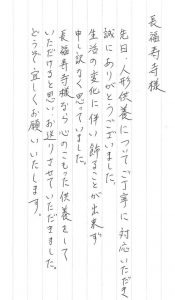 長福寿寺様
先日、人形供養についてご丁寧に対応いただき
誠にありがとうございました。
生活の変化に伴い飾ることが出来ず
申し訳なく思っていました。
長福寿寺様なら心のこもった供養をして
いただけると思いお送りさせていただきました。
どうぞ宜しくお願いいたします。